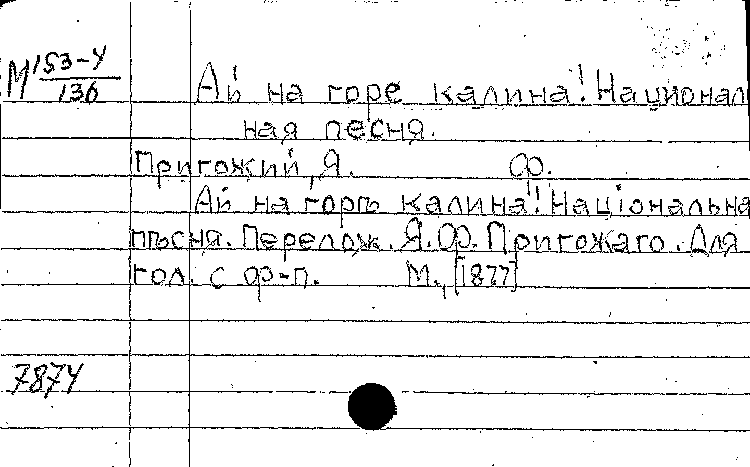 М 153-4
136
Ай на горе калина! Национал
ная песня.
Пригожий, Я. Ф.
Ай на горѣ калина!! Націонална
пѣсня. Перелож. Я. Ф. Пригожаго. Для
гол. с ф-п. М., [1877]
7874